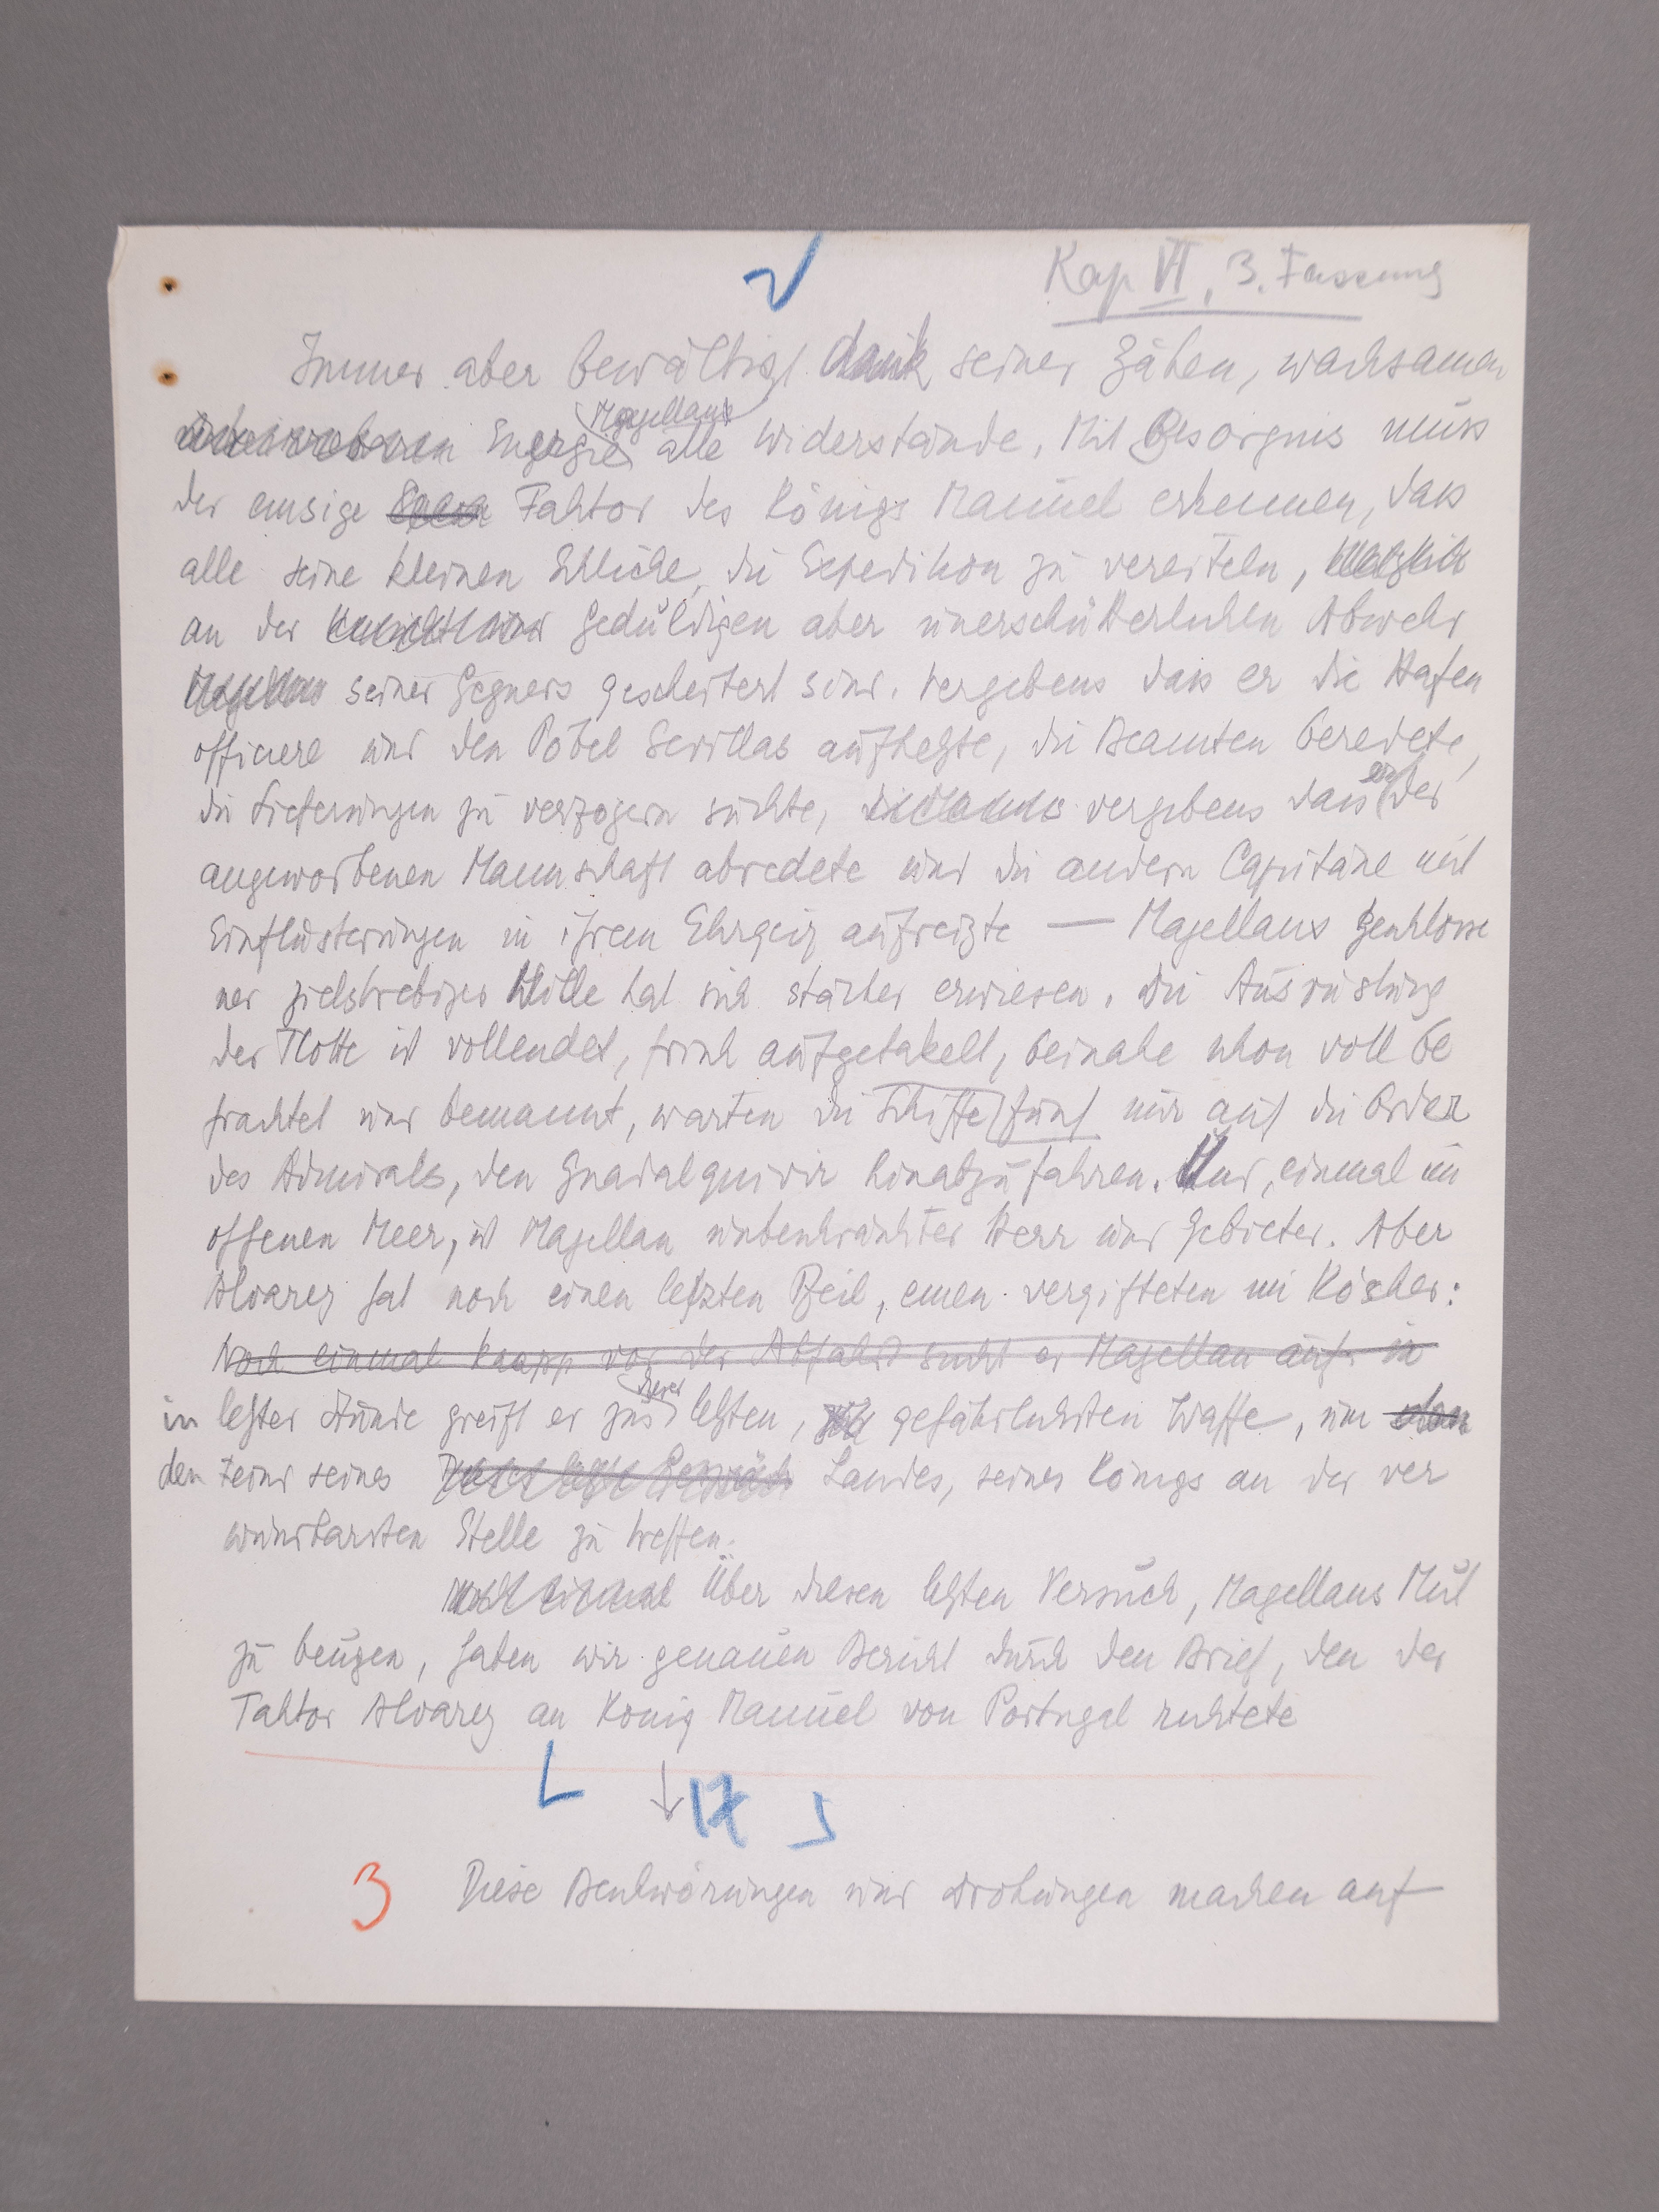 Kap VI, 3. Fassung
Immer aber bewältigt dank seiner zähen, wachsamen
Energie Magellan alle Widerstände. Mit Besorgnis muss
der emsige Faktor des Königs Manuel erkennen, dass
alle seine kleinen Schliche, die Expedition zu vereiteln,
an der geduldigen aber unerschütterlichen Abwehr
seines Gegners gescheitert sind. Vergebens dass er die Hafen
officiere und den Pöbel Sevillas aufhetzte, die Beamten beredete,
die Lieferungen zu verzögern suchte, vergebens dass er der
angeworbenen Mannschaft abredete und die andern Capitäne mit
Einflüsterungen in ihrem Ehrgeiz aufreizte — Magellans geschlosse
ner zielstrebiger Wille hat sich stärker erwiesen. Die Ausrüstung
der Flotte ist vollendet, frisch aufgetakelt, beinahe schon voll be
frachtet und bemannt, warten die Schiffe fünf nur auf die Order
des Admirals, den Guadalquivir hinabzufahren. Und, einmal im
offenen Meer, ist Magellan unbeschränkter Herr und Gebieter. Aber
Alvarez hat noch einen letzten Pfeil, einen vergifteten im Köcher:
Noch einmal knapp vor der Abfahrt sucht er Magellan auf. in
in letzter Stunde greift er zu dieser letzten, gefährlichsten Waffe, um
den Feind seines Landes, seines Königs an der ver
wundbarsten Stelle zu treffen.
noch einmal Über diesen letzten Versuch, Magellans Mut
zu beugen, haben wir genauen Bericht durch den Brief, den der
Faktor Alvarez an König Manuel von Portugal richtete
17
3 Diese Beschwörungen und Drohungen machen auf